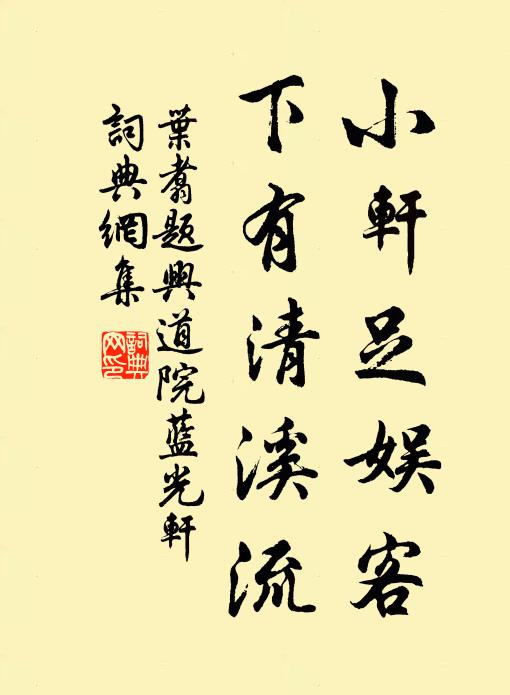 小軒足娛客
下有清溪流
葉翥題興道院藍光軒
詞典網集
詞典
网印